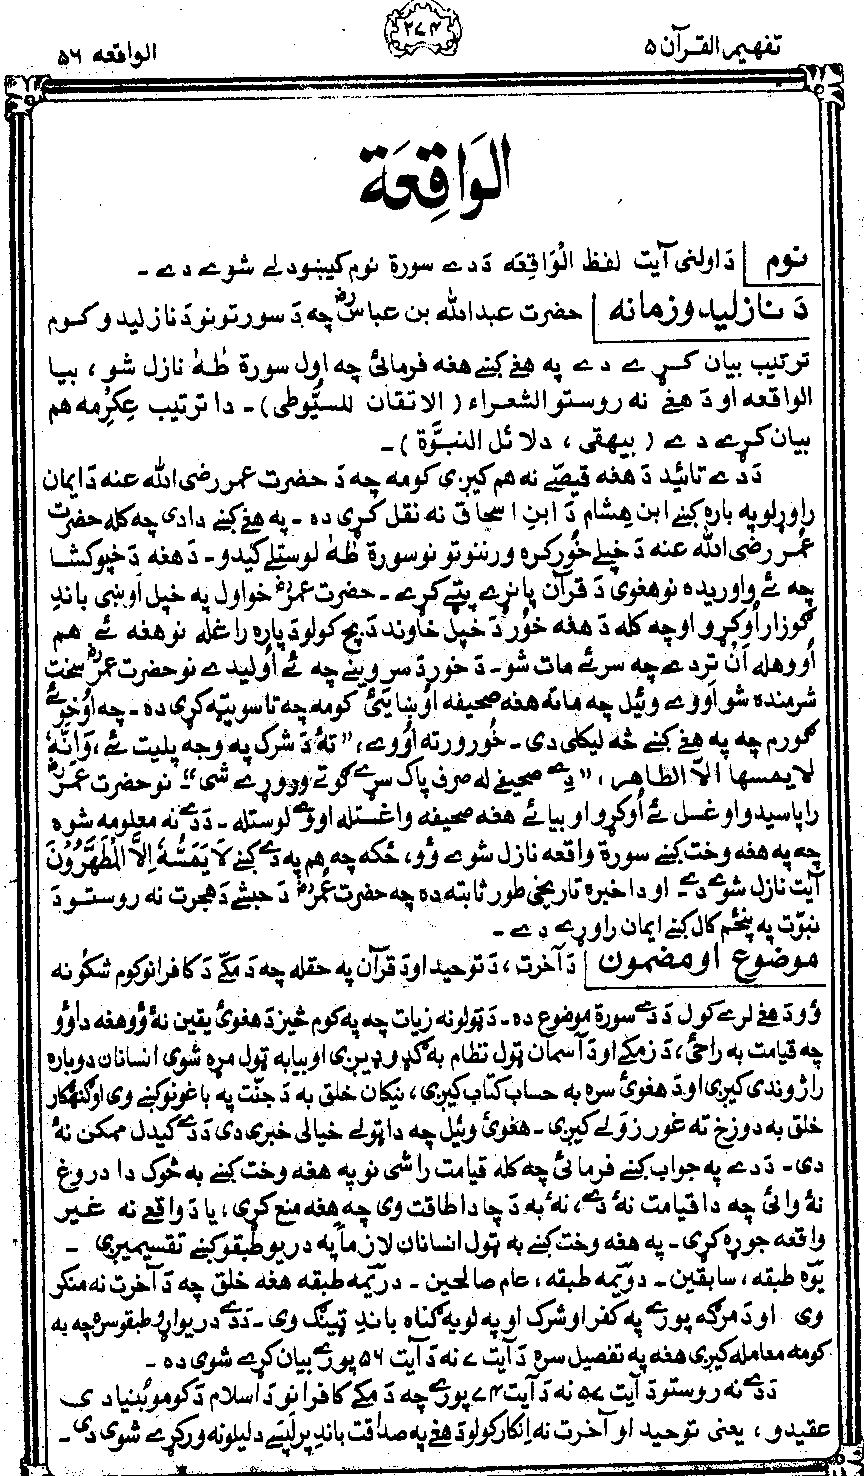 تفهیم القرآن ۵
۲۷۴
الواقعه ۵۶
الْوَاقِعَة
نوم | دَ اولنی آیت لفظ الْوَاقِعَه دَدے سورة نوم کیښودلے شوے دے ۔
دَ نازلیدو زمانه | حضرت عبدالله بن عباسؓ چه دَ سورتونو دَ نازلیدو کوم
ترتیب بیان کړے دے په هغے کښے هغه فرمائی چه اول سورة طٰهٰ نازل شو، بیا
الواقعه او دَ هغے نه روستو الشعراء (الاتقان للسیُّوطی)۔ دا ترتیب عِکرِمه هم
بیان کړے دے (بیهقی، دلائل النبوَّة)۔
دَدے تائید دَ هغه قیصّے نه هم کیږی کومه چه دَ حضرت عمر رضی الله عنه دَ ایمان
راوړلو په باره کښے ابن هِشام دَ ابنِ اسحاق نه نقل کړی ده۔ په هغے کښے دادی چه کله حضرت
عُمر رضی الله عنه دَ خپلے خُور کره ورننوتو نو سورة طٰهٰ لوستلے کیدو۔ دَ هغه دَ خپو کشا
چه ئے واوریده نو هغوی دَ قرآن پاڼرے پټے کړے۔ حضرت عمرؓ خو اول په خپل اوښی باندِ
ګوزار اُوکړو او چه کله دَ هغه خُور دَ خپل خاوند دَ بچ کولو دَ پاره راغله نو هغه ئے هم
اُووهله اَن تردے چه سر ئے مات شو۔ دَ خور دَ سر وینے چه ئے اُولیدے نو حضرت عمرؓ سخت
شرمنده شو او وے وئیل چه ماته هغه صحیفه اُوښایئ کومه چه تاسو پټه کړی ده۔ چه اُوخو ئے
ګورم چه په هغے کښے څه لیکلی دی۔ خُور ورته اُووے، "تهٔ دَ شرک په وجه پلیت ئے، وَاِنَّهٗ
لایمسها الاّ الطاهر، "دے صحیفے له صرف پاک سړے ګوتے وروړے شی"۔ نو حضرت عمرؓ
راپاسیدو او غسل ئے اُوکړو او بیائے هغه صحیفه واغستله او وے لوستله۔ دَدے نه معلومه شوه
چه په هغه وخت کښے سورة واقعه نازل شوے وُو، ځکه چه هم په دے کښے لَا یَمَسُّهٗ اِلاَّ الْمُطَهَّرُوْنَ
آیت نازل شوے دے۔ او دا خبره تاریخی طور ثابته ده چه حضرت عُمرؓ دَ حبشے دَ هجرت نه روستو دَ
نبوّت په پنځم کال کښے ایمان راوړے دے۔
موضوع او مضمون | دَ آخرت، دَ توحید او دَ قرآن په حقله چه دَ مکّے دَ کافرانو کوم شکونه
وُو دَ هغے لرے کول دَدے سورة موضوع ده۔ دَ ټولو نه زیات چه په کوم څیز دَ هغوئ یقین نهٔ وُو هغه دا وُو
چه قیامت به راځی، دَ زمکے او دَ آسمان ټول نظام به ګډوډیږی او بیا به ټول مړه شوی انسانان دوباره
راژوندی کیږی او دَ هغوئ سره به حساب کتاب کیږی، نیکان خلق به دَ جنّت په باغونو کښے وی او ګنهګار
خلق به دوزخ ته غورزولے کیږی۔ هغوئ وئیل چه دا ټولے خیالی خبرے دی دَدے کیدل ممکن نهٔ
دی۔ دَدے په جواب کښے فرمائی چه کله قیامت راشی نو په هغه وخت کښے به څوک دا دروغ
نهٔ وائی چه دا قیامت نهٔ دے، نهٔ به دَ چا دا طاقت وی چه هغه منع کړی، یا دَ واقعے نه غیر
واقعه جوړه کړی۔ په هغه وخت کښے به ټول انسانان لازماً په دریو طبقو کښے تقسیمیږی۔
یوّه طبقه، سابقین۔ دوئیمه طبقه، عام صالحین۔ دریمه طبقه هغه خلق چه دَ آخرت نه منکر
وی او دَ مرګه پورے په کفر او شرک او په لویه ګناه باندِ ټینګ وی۔ دَدے دریواړو طبقو سره چه به
کومه معامله کیږی هغه په تفصیل سره دَ آیت ۷ نه دَ آیت ۵۶ پورے بیان کړے شوی ده۔
دَدے نه روستو دَ آیت ۵۷ نه دَ آیت ۷۴ پورے چه دَ مکّے کافرانو دَ اسلام دَ کومو بُنیادی
عقیدو، یعنی توحید او آخرت نه اِنکار کولو دَ هغے په صداقت باندِ پرلپسے دلیلونه ورکړے شوی دی۔